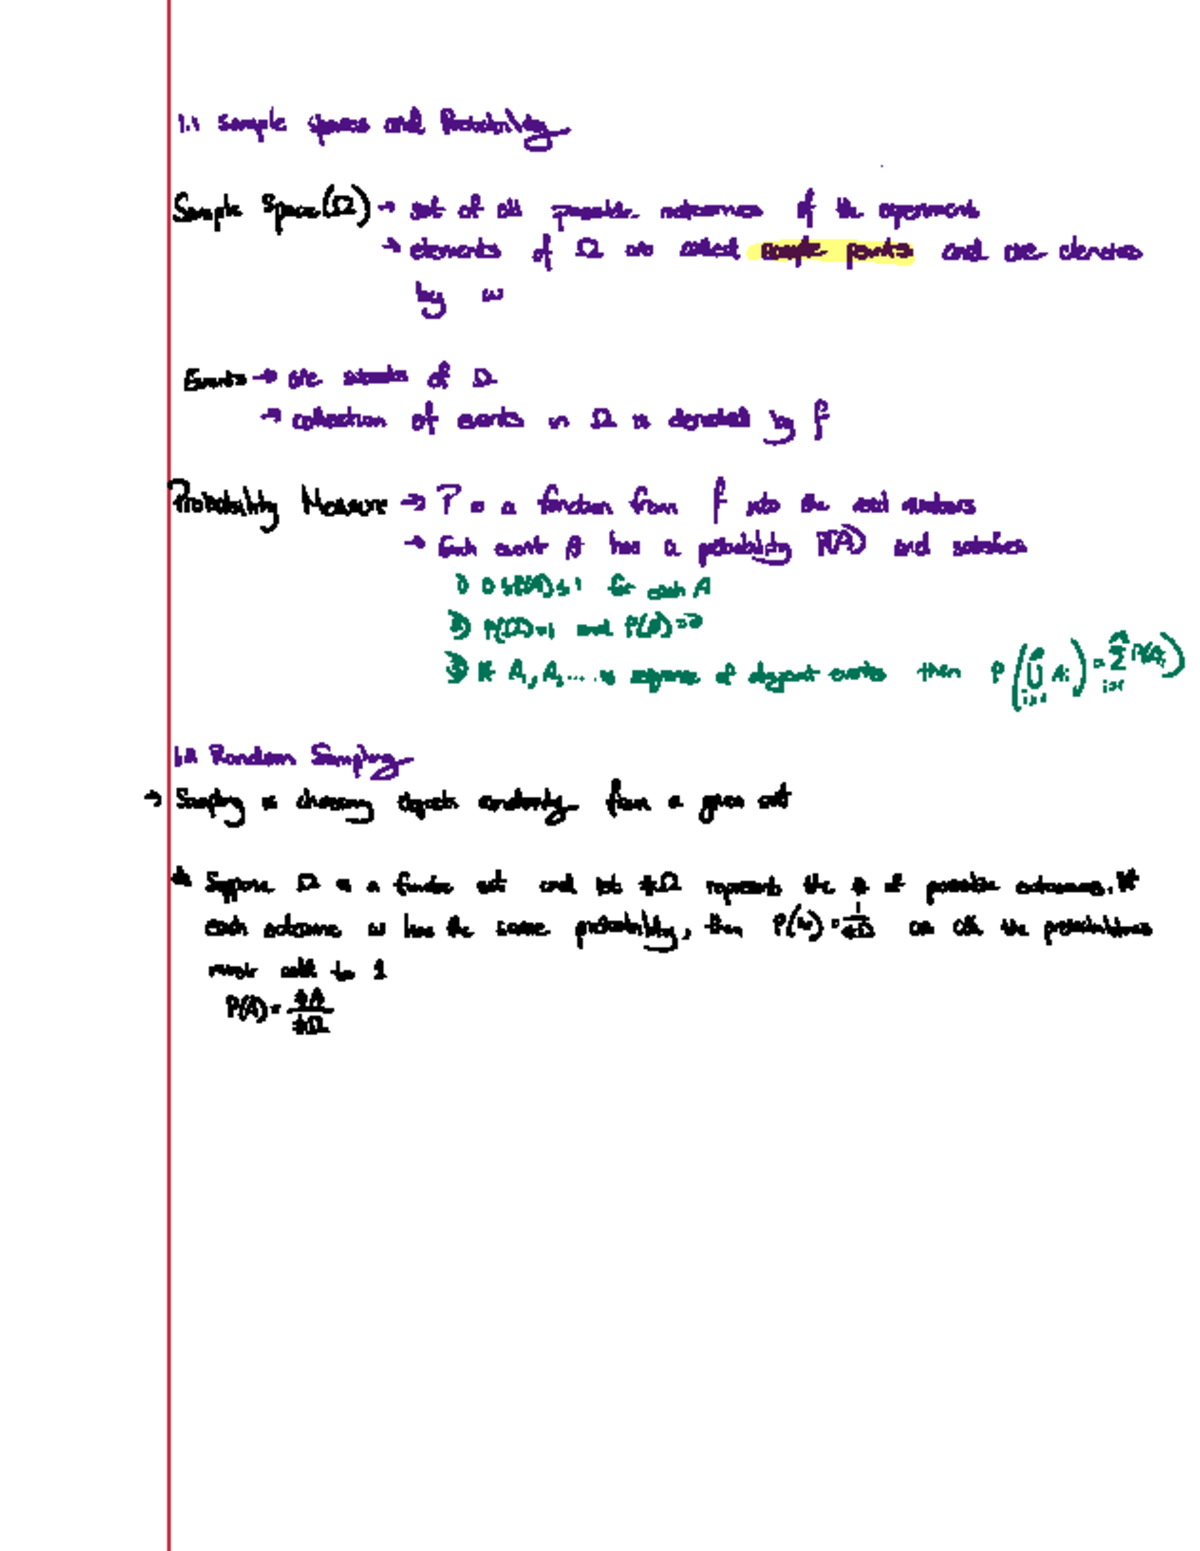 1.1 Sample Spaces and Probability
Sample Space (Ω) → set of all possible outcomes of the experiment
→ elements of Ω are called sample points and are denoted
by ω
Events → are subsets of Ω
→ collection of events in Ω is denoted by F
Probability Measure → P is a function from F into the real numbers
→ Each event A has a probability P(A) and satisfies
1) 0 ≤ P(A) ≤ 1 for each A
2) P(Ω)=1 and P(∅)=0
3) If A₁, A₂ ... is sequence of disjoint events then P(⋃ᵢ₌₁^∞ Aᵢ) = ∑ᵢ₌₁^∞ P(Aᵢ)
1.2 Random Sampling
→ Sampling is choosing objects randomly from a given set
Suppose Ω is a finite set and let #Ω represents the # of possible outcomes. If
each outcome ω has the same probability, then P(ω) = 1/#Ω as all the probabilities
must add to 1
P(A) = #A/#Ω